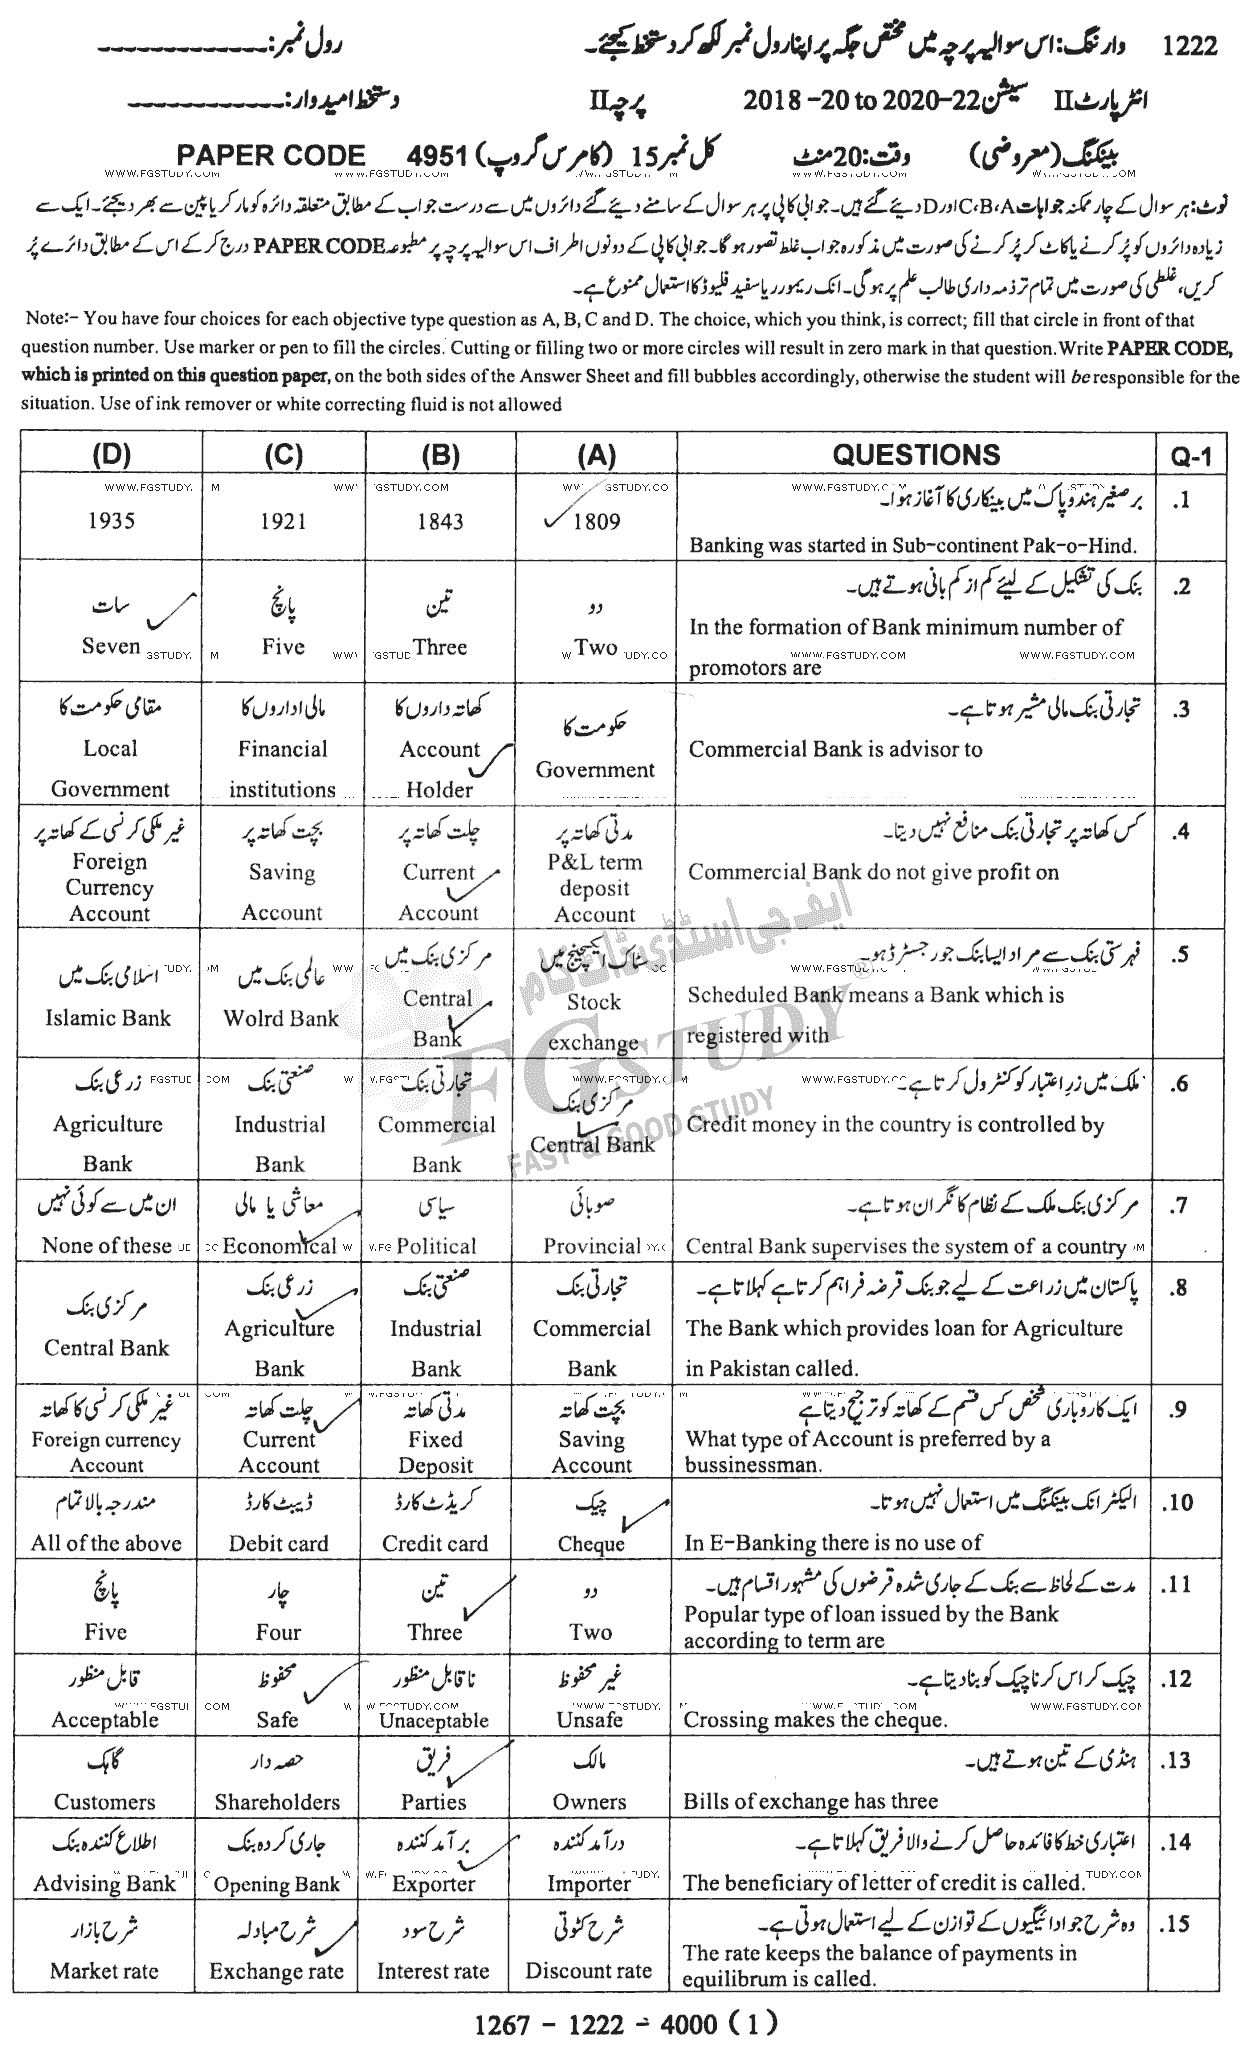 1222 وارننگ: اس سوالیہ پرچہ میں مختص جگہ پر اپنا رول نمبر لکھ کر دستخط کیجئے۔ رول نمبر: ____________
انٹر پارٹ II سیشن 2018 -20 to 2020-22 پرچہ II دستخط امیدوار: ____________
بینکنگ (معروضی) وقت: 20 منٹ کل نمبر 15 (کامرس گروپ) PAPER CODE 4951
نوٹ: ہر سوال کے چار ممکنہ جوابات A، B، C اور D دیئے گئے ہیں۔ جوابی کاپی پر ہر سوال کے سامنے دیئے گئے دائروں میں سے درست جواب کے مطابق متعلقہ دائرہ کو مارکر یا پین سے بھر دیجئے۔ ایک سے
زیادہ دائروں کو پُر کرنے یا کاٹ کر پُر کرنے کی صورت میں مذکورہ جواب غلط تصور ہوگا۔ جوابی کاپی کے دونوں اطراف اس سوالیہ پرچہ پر مطبوعہ PAPER CODE درج کر کے اس کے مطابق دائرے پُر
کریں، غلطی کی صورت میں تمام تر ذمہ داری طالب علم پر ہوگی۔ انک ریمور یا سفید فلیوڈ کا استعمال ممنوع ہے۔
Note:- You have four choices for each objective type question as A, B, C and D. The choice, which you think, is correct; fill that circle in front of that
question number. Use marker or pen to fill the circles. Cutting or filling two or more circles will result in zero mark in that question. Write PAPER CODE,
which is printed on this question paper, on the both sides of the Answer Sheet and fill bubbles accordingly, otherwise the student will be responsible for the
situation. Use of ink remover or white correcting fluid is not allowed
(D) (C) (B) (A) QUESTIONS Q-1
.1 برصغیر ہند و پاک میں بینکاری کا آغاز ہوا۔
1935 1921 1843 1809
Banking was started in Sub-continent Pak-o-Hind.
.2 بنک کی تشکیل کے لیئے کم از کم بانی ہوتے ہیں۔
سات پانچ تین دو
Seven Five Three Two In the formation of Bank minimum number of
promotors are
.3 تجارتی بنک مالی مشیر ہوتا ہے۔
مقامی حکومت کا مالی اداروں کا کھاتہ داروں کا حکومت کا
Local Financial Account Government Commercial Bank is advisor to
Government institutions Holder
.4 کس کھاتہ پر تجارتی بنک منافع نہیں دیتا۔
غیر ملکی کرنسی کے کھاتہ پر بچت کھاتہ پر چلت کھاتہ پر مدتی کھاتہ پر
Foreign Saving Current P&L term Commercial Bank do not give profit on
Currency deposit
Account Account Account Account
.5 فہرستی بنک سے مراد ایسا بنک جو رجسٹرڈ ہو۔
اسلامی بنک میں عالمی بنک میں مرکزی بنک میں سٹاک ایکسچینج میں
Islamic Bank Wolrd Bank Central Stock Scheduled Bank means a Bank which is
Bank exchange registered with
.6 ملک میں زرِ اعتبار کو کنٹرول کرتا ہے۔
زرعی بنک صنعتی بنک تجارتی بنک مرکزی بنک
Agriculture Industrial Commercial Central Bank Credit money in the country is controlled by
Bank Bank Bank
.7 مرکزی بنک ملک کے نظام کا نگران ہوتا ہے۔
ان میں سے کوئی نہیں معاشی یا مالی سیاسی صوبائی
None of these Economical Political Provincial Central Bank supervises the system of a country
.8 پاکستان میں زراعت کے لیے جو بنک قرضہ فراہم کرتا ہے کہلاتا ہے۔
مرکزی بنک زرعی بنک صنعتی بنک تجارتی بنک
Central Bank Agriculture Industrial Commercial The Bank which provides loan for Agriculture
Bank Bank Bank in Pakistan called.
.9 ایک کاروباری شخص کس قسم کے کھاتہ کو ترجیح دیتا ہے
غیر ملکی کرنسی کا کھاتہ چلت کھاتہ مدتی کھاتہ بچت کھاتہ
Foreign currency Current Fixed Saving What type of Account is preferred by a
Account Account Deposit Account bussinessman.
.10 الیکٹرانک بینکنگ میں استعمال نہیں ہوتا۔
مندرجہ بالا تمام ڈیبٹ کارڈ کریڈٹ کارڈ چیک
All of the above Debit card Credit card Cheque In E-Banking there is no use of
.11 مدت کے لحاظ سے بنک کے جاری شدہ قرضوں کی مشہور اقسام ہیں۔
پانچ چار تین دو
Five Four Three Two Popular type of loan issued by the Bank
according to term are
.12 چیک کراس کرنا چیک کو بنا دیتا ہے۔
قابل منظور محفوظ ناقابل منظور غیر محفوظ
Acceptable Safe Unaceptable Unsafe Crossing makes the cheque.
.13 ہنڈی کے تین ہوتے ہیں۔
گاہک حصہ دار فریق مالک
Customers Shareholders Parties Owners Bills of exchange has three
.14 اعتباری خط کا فائدہ حاصل کرنے والا فریق کہلاتا ہے۔
اطلاع کنندہ بنک جاری کردہ بنک برآمد کنندہ درآمد کنندہ
Advising Bank Opening Bank Exporter Importer The beneficiary of letter of credit is called.
.15 وہ شرح جو ادائیگیوں کے توازن کے لیے استعمال ہوتی ہے۔
شرح بازار شرح مبادلہ شرح سود شرح کٹوتی
Market rate Exchange rate Interest rate Discount rate The rate keeps the balance of payments in
equilibrum is called.
1267 - 1222 - 4000 (1)
ایف جی اسٹڈی ڈاٹ کام
FGSTUDY
FAST & GOOD STUDY
WWW.FGSTUDY.COM